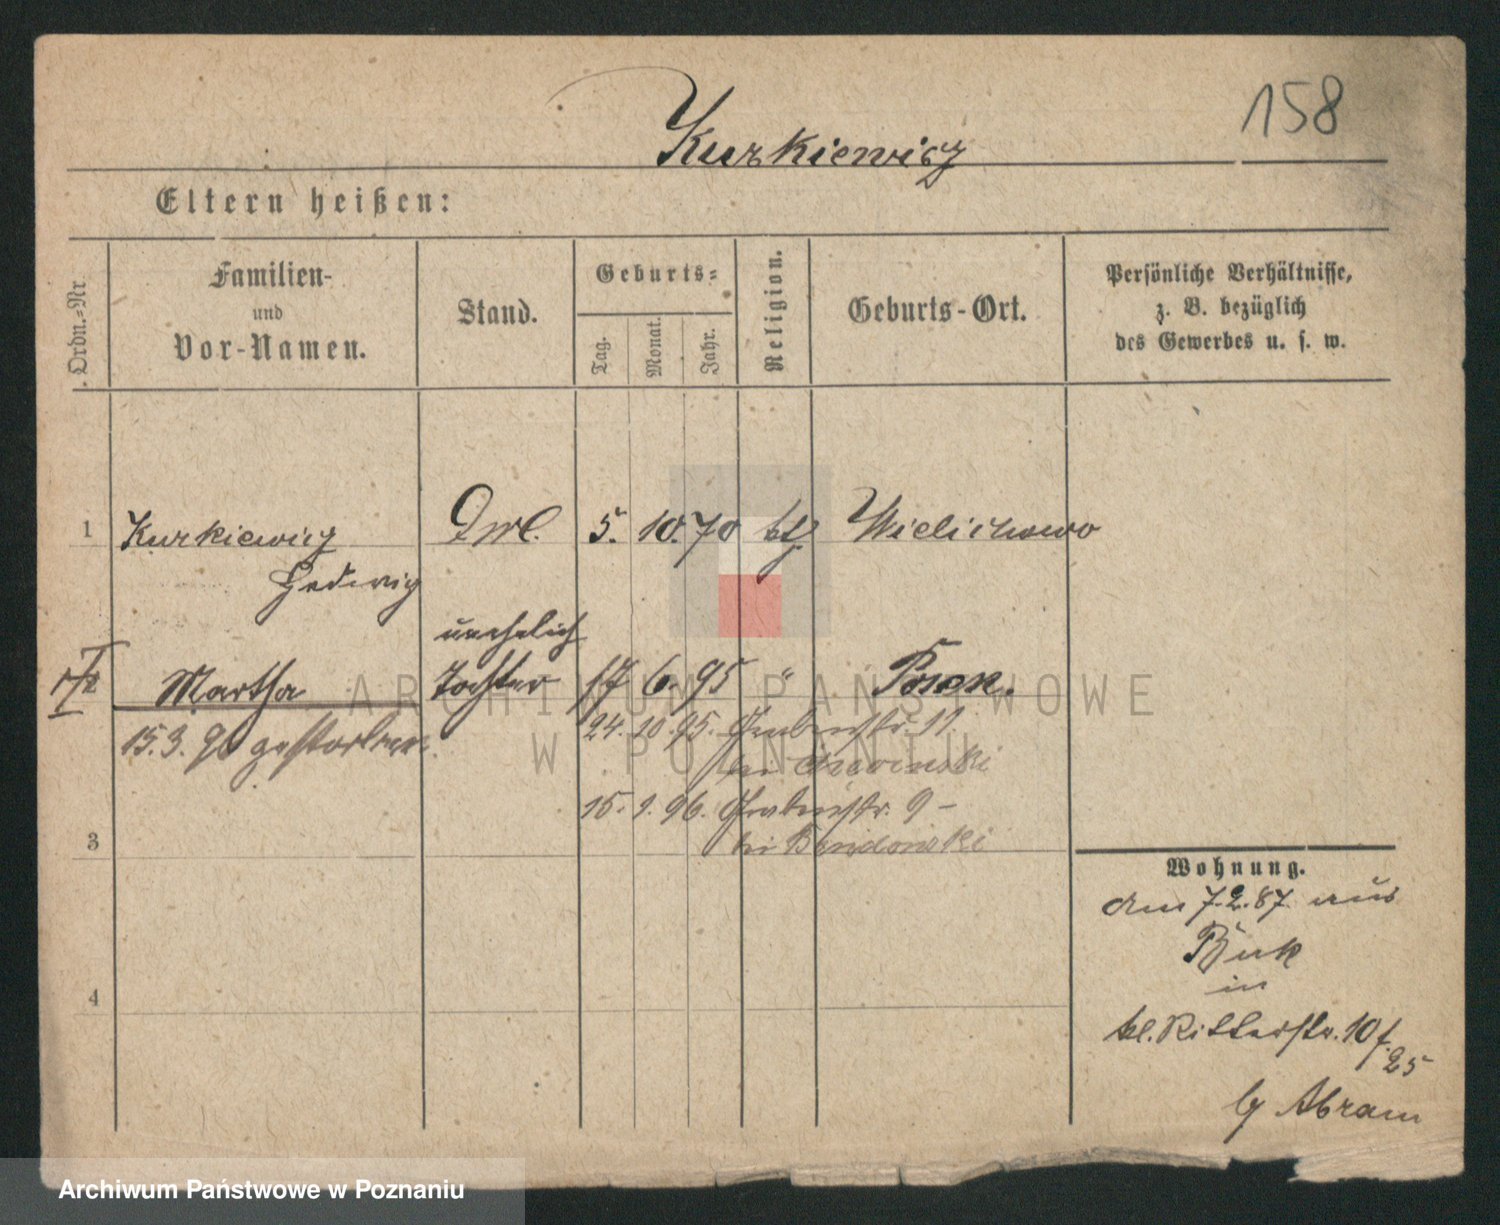 158
Kurkiewicz
Eltern heißen:
Ordn.-Nr.
Familien-
und
Vor-Namen.
Stand.
Geburts-
Tag.
Monat.
Jahr.
Religion.
Geburts-Ort.
Persönliche Verhältnisse,
z. B. bezüglich
des Gewerbes u. s. w.
1 Kurkiewicz 5. 10. 70 ktl Wielichowo
Hedwig
unehelich
2 Martha Tochter 17 6. 95 " Posen.
15.3.96 gestorben
24. 10. 95. Grabenstr. 11
bei
15. 1. 96. Grabenstr. 9-
bei
3
4
Wohnung.
den 7.2.87. aus
Buk
in
kl. Ritterstr. 10 f.
25
by Abram
ARCHIWUM PAŃSTWOWE
W POZNANIU
Archiwum Państwowe w Poznaniu